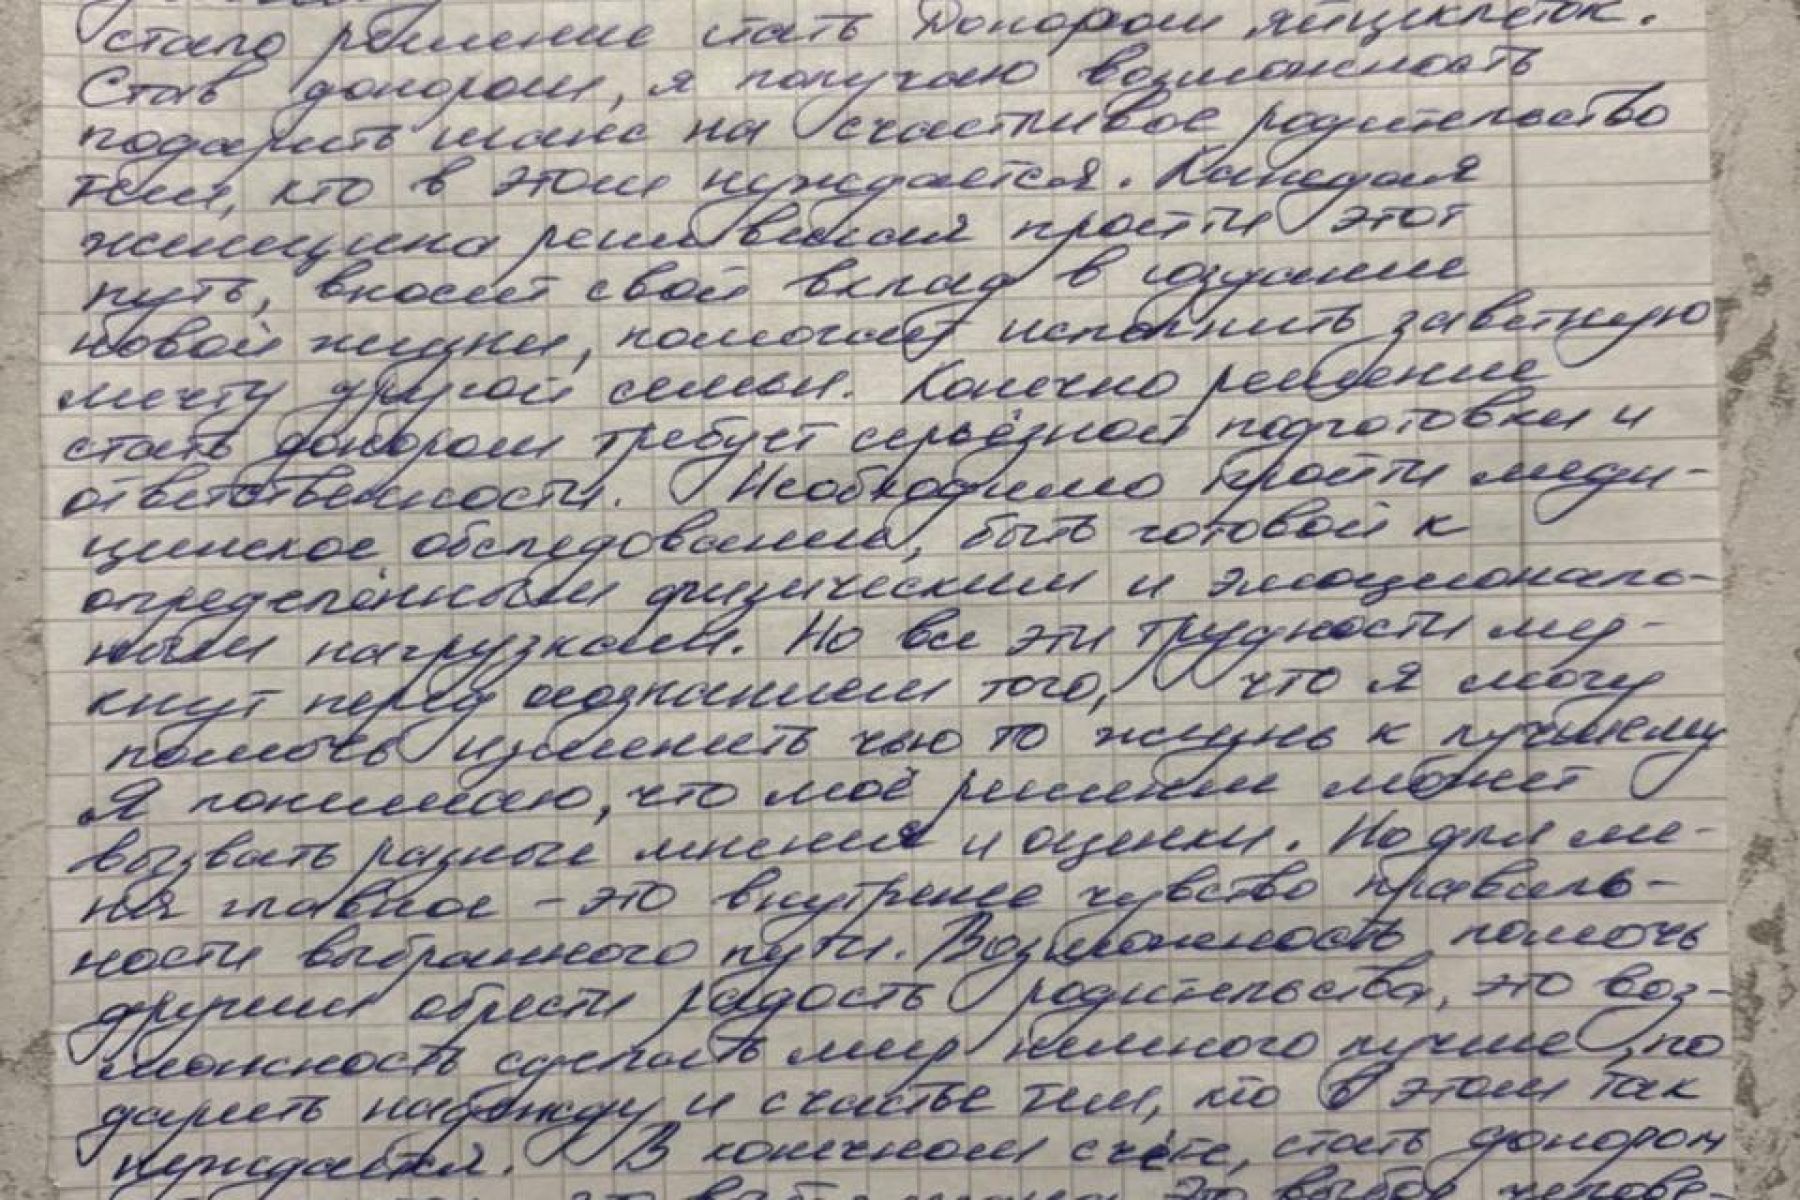 стало решение стать Донором яйцеклеток.
Став донором, я получаю возможность
подарить шанс на счастливое родительство
тем, кто в этом нуждается. Каждая
женщина решившая пройти этот
путь, вносит свой вклад в создание
новой жизни, помогает исполнить заветную
мечту другой семьи. Конечно решение
стать донором требует серьёзной подготовки и
ответственности. Необходимо пройти меди-
цинское обследование, быть готовой к
определённым физическим и эмоциональ-
ным нагрузкам. Но все эти трудности мер-
кнут перед осознанием того, что я могу
помочь изменить чью то жизнь к лучшему
Я понимаю, что моё решение может
вызвать разные мнения и оценки. Но для ме-
ня главное - это внутренее чувство правиль-
ности выбранного пути. Возможность помочь
другим обрести радость родительства, это воз-
можность сделать мир немного лучше, по
дарить надежду и счастье тем, кто в этом так
нуждается. В конечном счёте, стать донором
это выбор